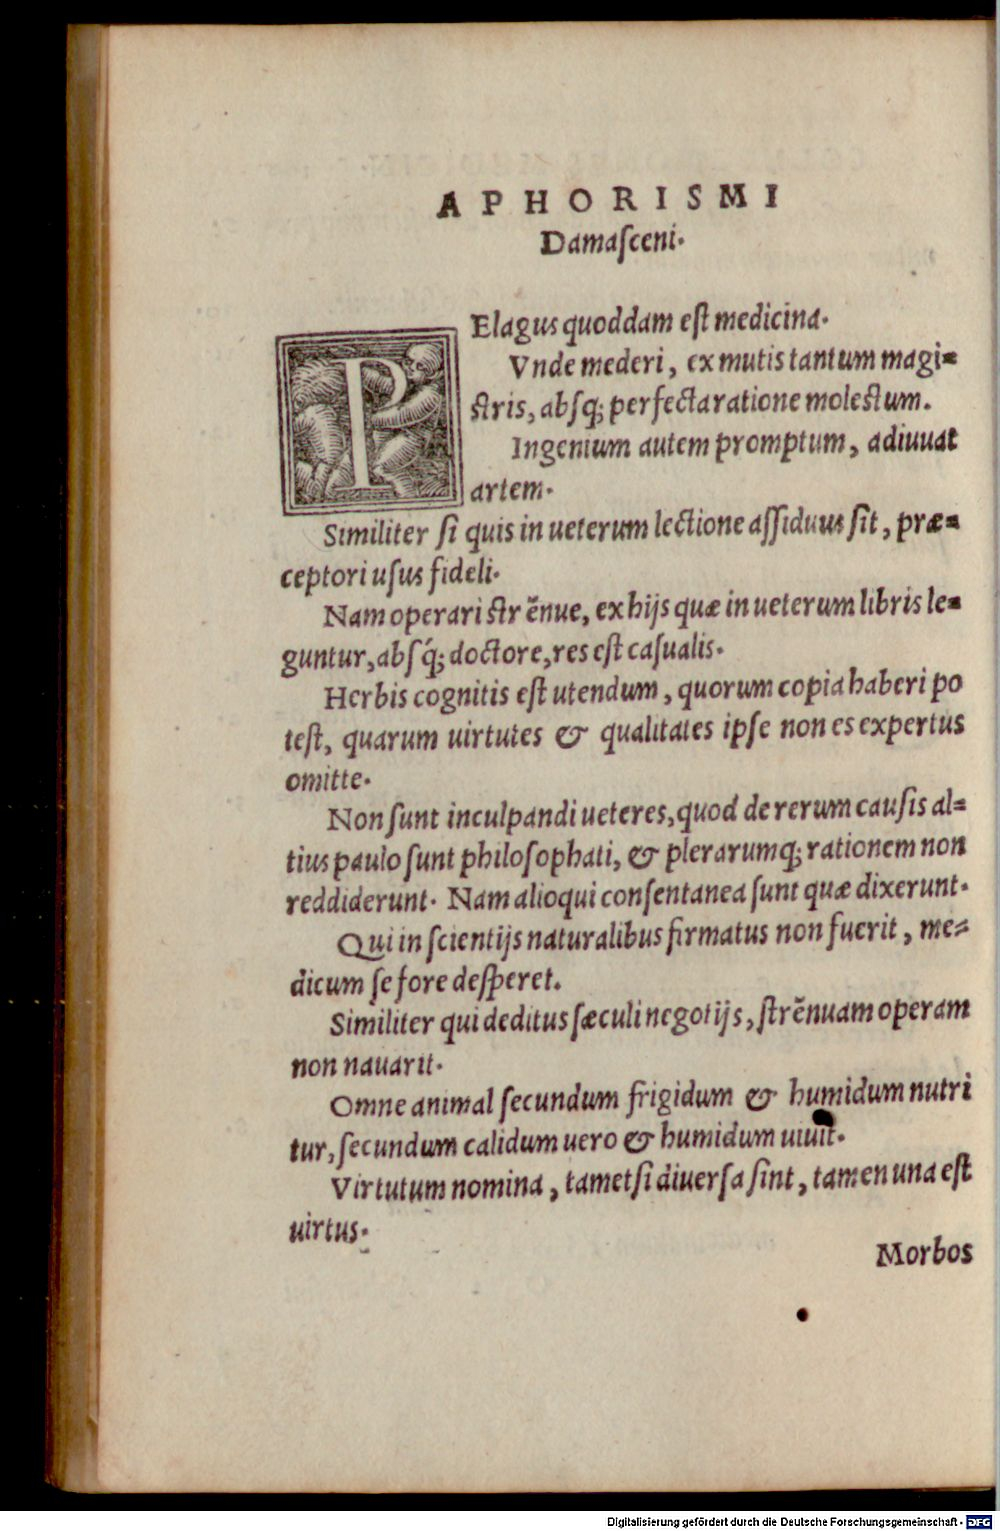 APHORISMI
Damaſceni.
PElagus quoddam eſt medicina.
Vnde mederi, ex mutis tantum magi=
ſtris, abſq; perfecta ratione moleſtum.
Ingenium autem promptum, adiuuat
artem.
Similiter ſi quis in ueterum lectione aſſiduus ſit, præ=
ceptori uſus fideli.
Nam operari ſtrẽnue, ex hijs quæ in ueterum libris le=
guntur, abſq́; doctore, res eſt caſualis.
Herbis cognitis eſt utendum, quorum copia haberi po
teſt, quarum uirtutes & qualitates ipſe non es expertus
omitte.
Non ſunt inculpandi ueteres, quod de rerum cauſis al=
tius paulo ſunt philoſophati, & plerarumq; rationem non
reddiderunt. Nam alioqui conſentanea ſunt quæ dixerunt.
Qui in ſcientijs naturalibus firmatus non fuerit, me=
dicum ſe fore deſperet.
Similiter qui deditus ſæculi negotijs, ſtrẽnuam operam
non nauarit.
Omne animal ſecundum frigidum & humidum nutri
tur, ſecundum calidum uero & humidum uiuit.
Virtutum nomina, tametſi diuerſa ſint, tamen una eſt
uirtus.
Morbos
Digitalisierung gefördert durch die Deutsche Forschungsgemeinschaft - DFG